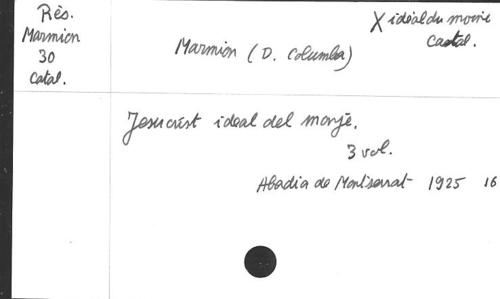 Rès.
Marmion
30
Catal.
X idéal du moine
Castal.
Marmion (D. Columba)
Jesucrist ideal del monjè.
3 vol.
Abadia de Montserrat 1925 16